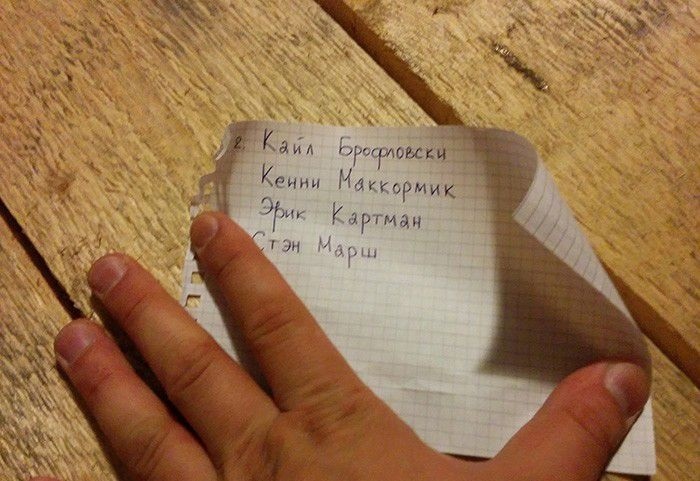 2. Кайл Брофловски
Кенни Маккормик
Эрик Картман
Стэн Марш